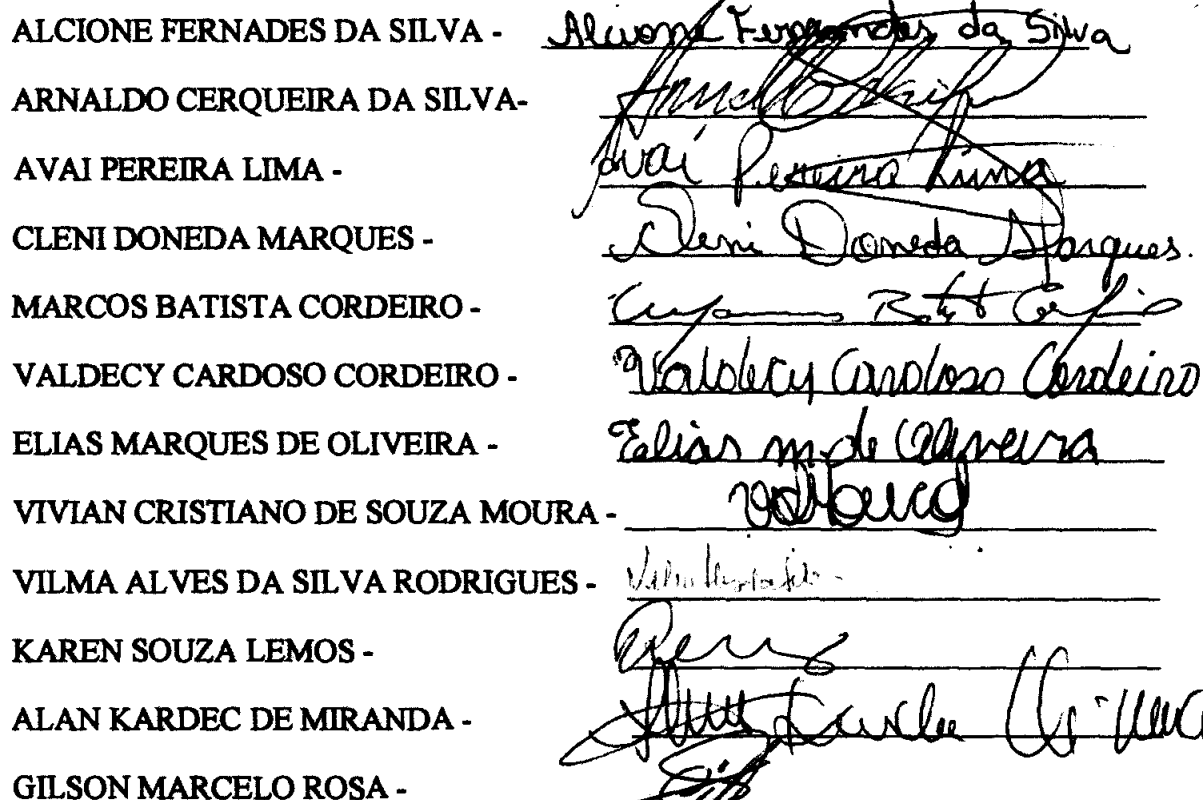 ALCIONE FERNADES DA SILVA - Alcione Fernandes da Silva
ARNALDO CERQUEIRA DA SILVA-
AVAI PEREIRA LIMA - Avaí Pereira Lima
CLENI DONEDA MARQUES - Cleni Doneda Marques.
MARCOS BATISTA CORDEIRO -
VALDECY CARDOSO CORDEIRO - Valdecy Cardoso Cordeiro
ELIAS MARQUES DE OLIVEIRA - Elias m. de Oliveira
VIVIAN CRISTIANO DE SOUZA MOURA -
VILMA ALVES DA SILVA RODRIGUES -
KAREN SOUZA LEMOS -
ALAN KARDEC DE MIRANDA -
GILSON MARCELO ROSA -